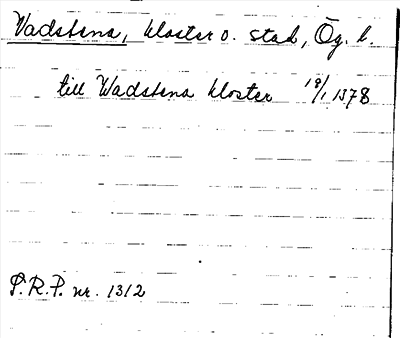 Vadstena, kloster o. stad, Ög. l.
till Wadstena kloster 18/1 1378
S.R.P. nr. 1312